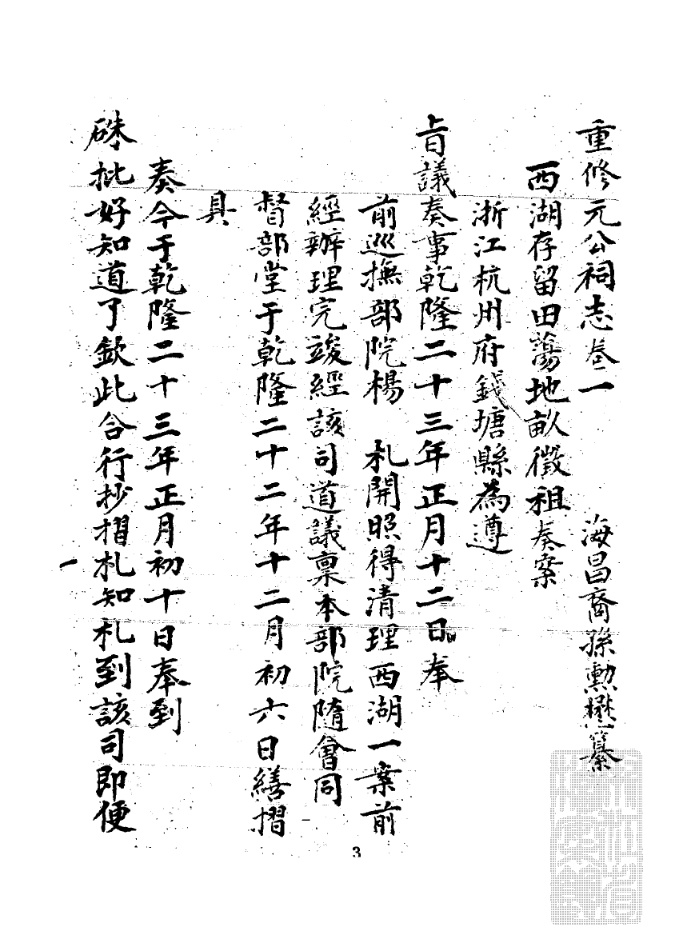 重修元公祠志卷一 海昌裔孫勲懋纂
西湖存留田蕩地畝徵祖奏案
浙江杭州府錢塘縣為遵
旨議奏事乾隆二十三年正月十二日奉
前巡撫部院楊 札開照得清理西湖一案前
經辦理完竣經該司道議稟本部院隨會同
督部堂于乾隆二十二年十二月初六日繕摺
具
奏今于乾隆二十三年正月初十日奉到
硃批好知道了欽此合行抄摺札知札到該司即便
一
3